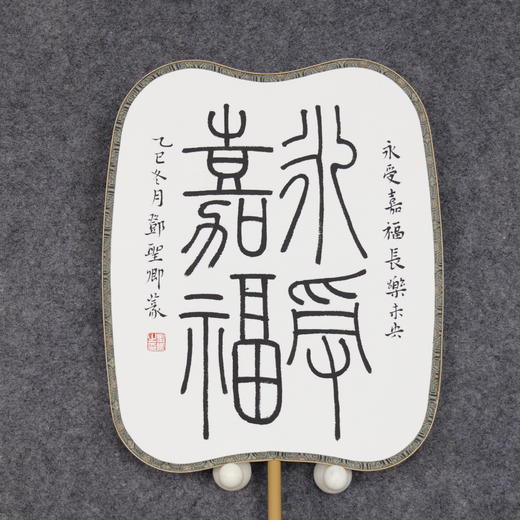 永受嘉福長樂未央
永受
嘉福
乙巳冬月鄧聖卿篆